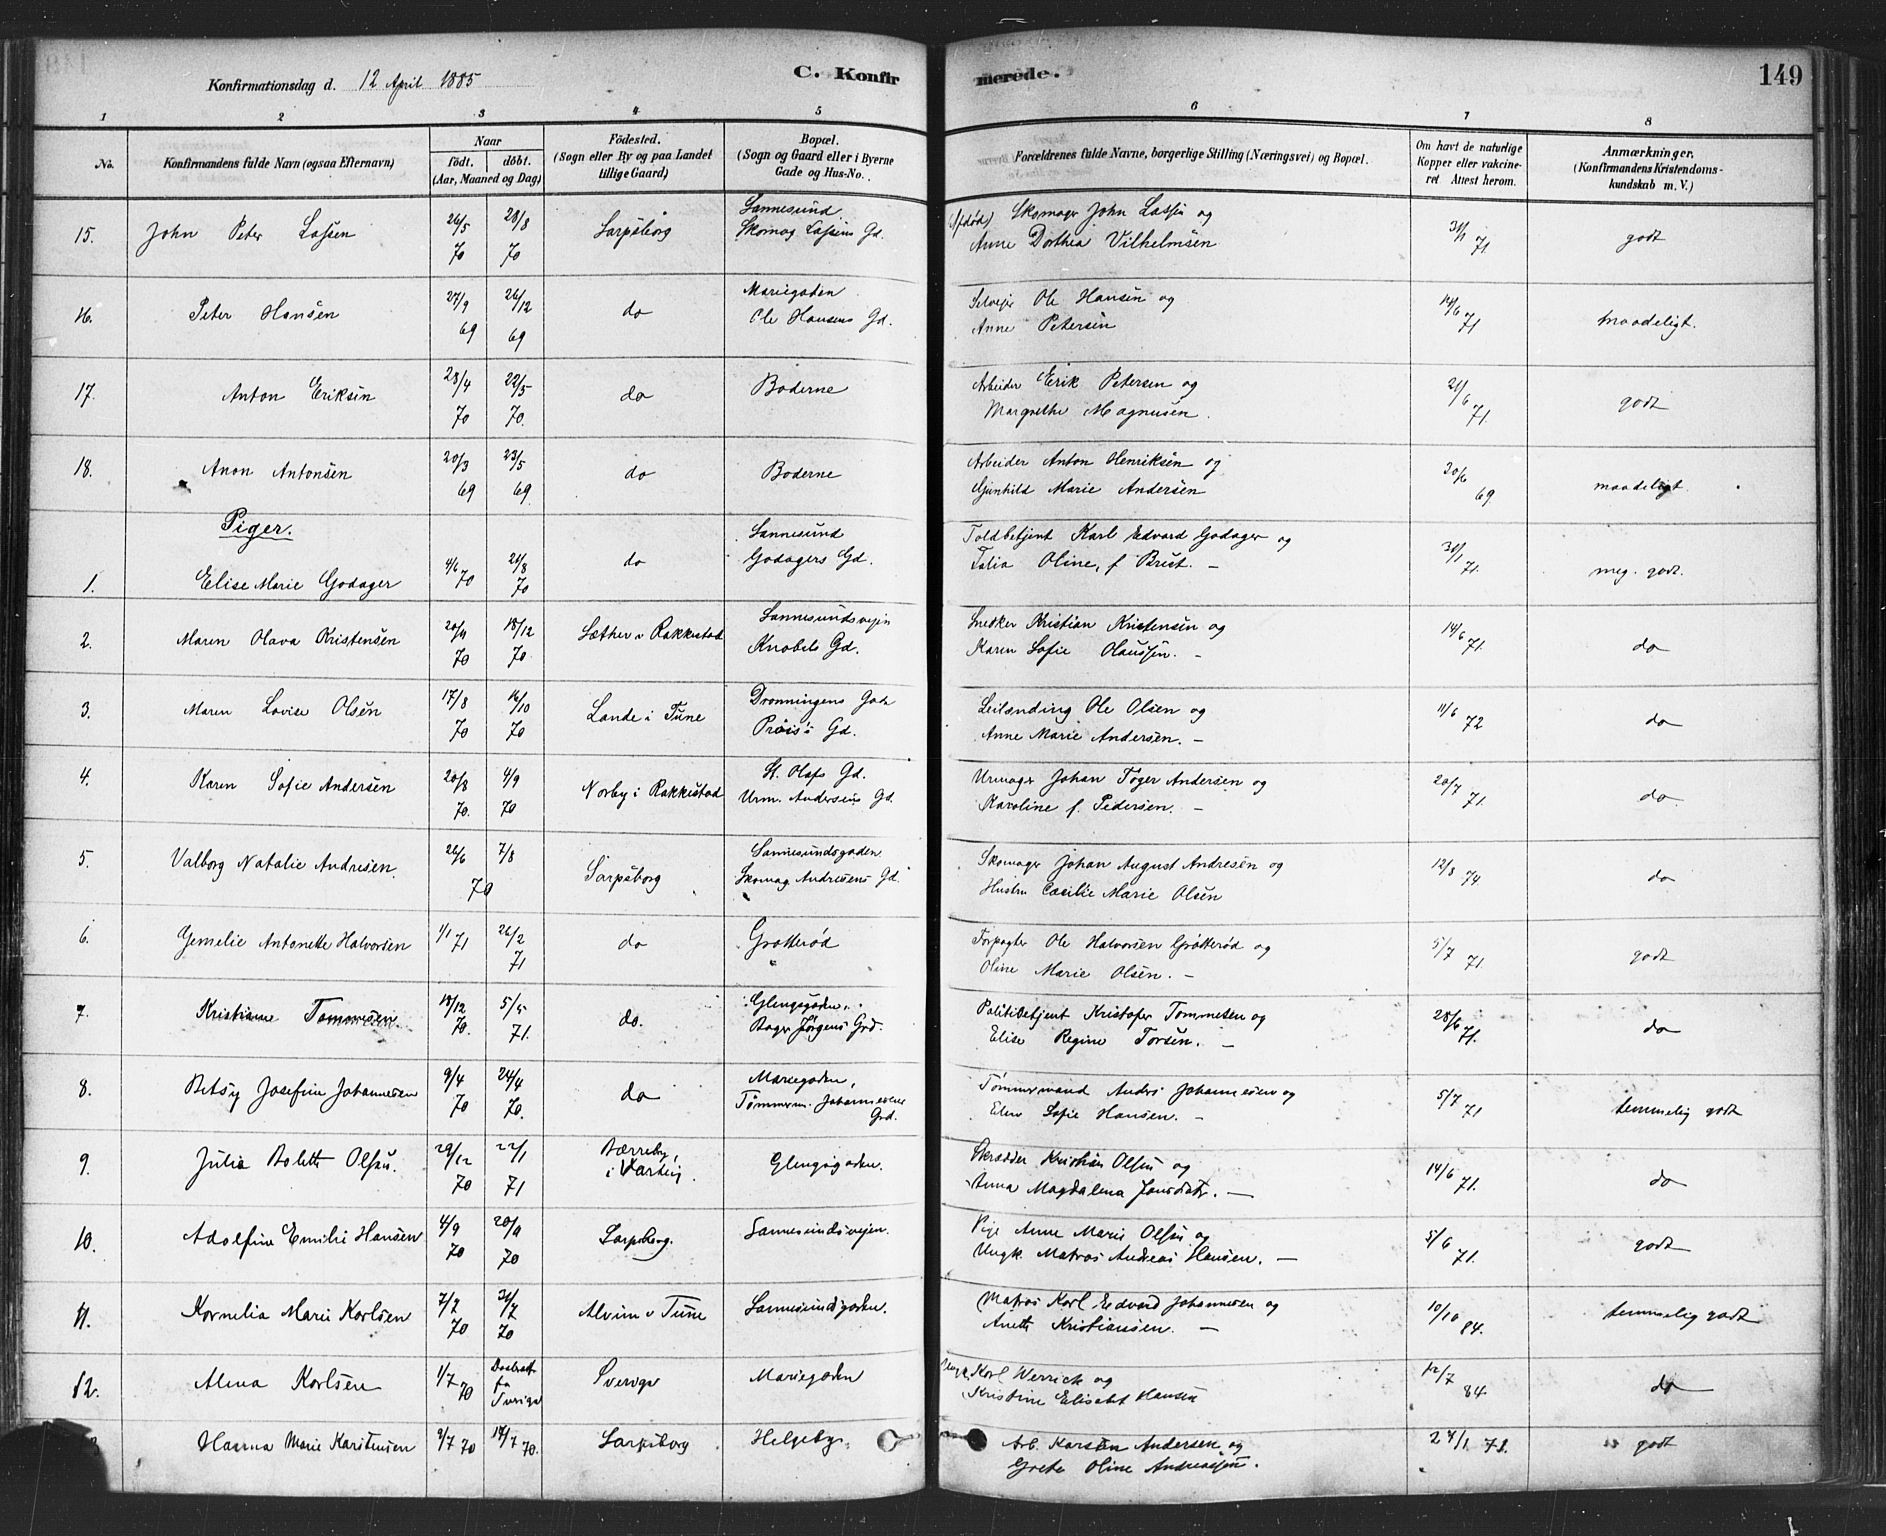 Konfirmationsdag d. 12 April 1885
C. Konfirmerede.
149
1 2 3 4 5 6 7 8
No.
Konfirmandens fulde Navn (ogsaa Efternavn)
Naar
födt. döbt.
(Aar, Maaned og Dag)
Födested.
(Sogn eller By og paa Landet
tillige Gaard)
Bopæl.
(Sogn og Gaard eller i Byerne
Gade og Hus-No.
Forældrenes fulde Navne, borgerlige Stilling (Næringsvei) og Bopæl.
Om havt de naturlige
Kopper eller vakcine-
ret Attest herom.
Anmærkninger.
(Konfirmandens Kristendoms-
kundskab m. V.)
15. John Peter Lassen 26/5 70 28/8 70 Sarpsborg
Sannesund
Skomag Lassens Gd.
Skomager John Lassen og
Anne Dorthea Vilhelmsen
31/1 71. godt
16. Peter Hansen 27/9 69 26/12 69 do
Mariegaden
Ole Hansens Gd.
Selveier Ole Hansen og
Anne Petersen
14/6 71 maadeligt.
17. Anton Eriksen 28/4 70 22/5 70. do Boderne
Arbeider Erik Petersen og
Margrethe Magnusen.
21/6 71. godt
18. Anon Antonsen 20/3 69 23/5 69. do Boderne
Arbeider Anton Henriksen og
Gunhild Marie Andersen
30/6 69 maadeligt.
Piger.
1. Elise Marie Godager 4/6 70 21/8 70 do
Sannesund
Godagers Gd.
Toldbetjent Karl Edvard Godager og
Talia Oline, f Brist. -
31/1 71. meg. godt.
2. Maren Olava Kristensen 20/11 70 18/12 70 Sæther i Rakkestad
Sannesundsvejen
Knobels Gd.
Snedker Kristian Kristensen og
Karen Sofie Olaussen. -
14/6 71. do
3. Maren Lovise Olsen 17/8 70 16/10 70 Lande i Tune
Dronningens Gade
Prøis's Gd.
Leilænding Ole Olsen og
Anne Marie Andersen. -
11/6 72 do
4. Karen Sofie Andersen 20/8 70. 4/9 70 Norby i Rakkestad
St. Olafs Gd.
Urm. Andersens Gd.
Urmager Johan Töger Andersen og
Karoline f. Pedersen. -
20/7 71. do.
5. Valborg Natalie Andresen. 26/6 7/8 70 Sarpsborg
Sannesundsgaden.
Skomag Andresens Gd.
Skomager Johan August Andresen og
Hustru Cæcilie Marie Olsen
12/8 74. do
6. Gemelie Antonette Halvorsen 1/1 71 26/2 71 do Grotterød
Forpagter Ole Halvorsen Grötteröd og
Oline Marie Olsen. -
5/7 71. godt
7. Kristiane Tommesen. 18/12 70. 5/5 71. do.
Glengsgaden.
Bager Jørgens Grd.
Politibetjent Kristofer Tommesen og
Elise Regine Torsen. -
28/6 71. do
8. Betsy Josefine Johannesen 9/4 70 24/4 70. do
Mariegaden,
Tømmerm. Johannesens
Grd.
Tømmermand Anders Johannesen og
Elen Sofie Hansen. -
5/7 71 temmelig godt
9. Julia Bolette Olsen. 29/12 70 22/1 71
Bærreby,
i Varteig.
Glengsgaden.
Skrædder Kristian Olsen og
Anna Magdalena Jansdatr. -
14/6 71. do
10. Adolfine Emilie Hansen 4/9 70 20/9 70 Sarpsborg. Sannesundsvejen.
Pige Anne Marie Olsen og
Ungk Matros Andreas Hansen. -
5/6 71. godt
11. Kornelia Marie Karlsen 7/2 70 31/7 70 Alvim i Tune Sannesundsgaden.
Matros Karl Edvard Johannesen og
Anette Kristiansen. -
10/10 84. temmelig godt
12. Alma Karlsen 1/7 70
Daabsatt.
fra
Sverige
Sverige Mariegaden
Ungk. Karl Werrick og
Kristine Elisabet Hansen
12/7 84. do
Hanna Marie Karstensen 9/7 70 17/7 70. Sarpsborg Helgeby.
Arb. Karsten Andersen og
Grete Oline Andreassen.
24/1 71. godt